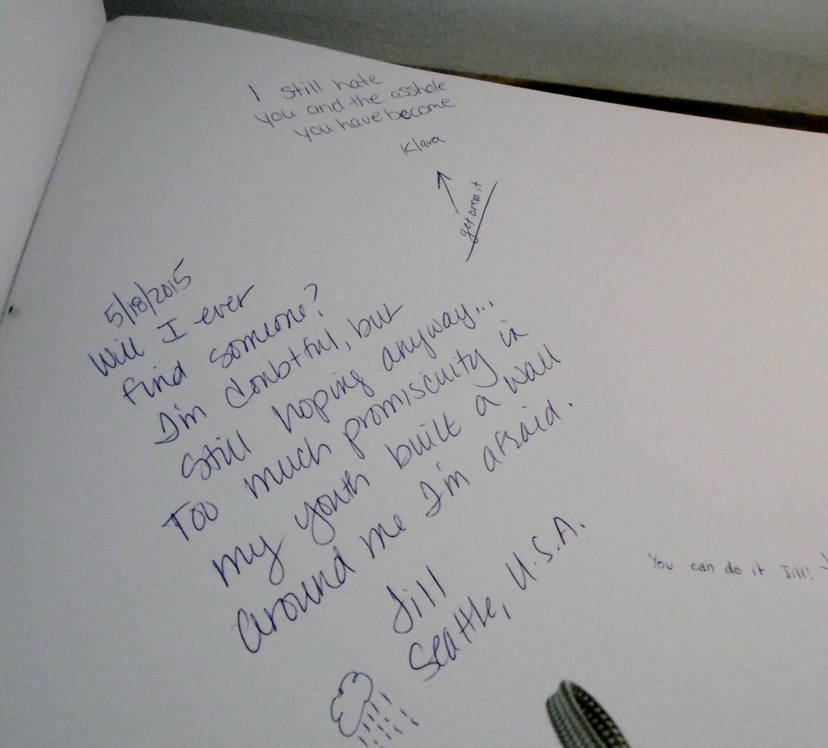 I still hate
you and the asshole
you have become
Klara
get over it
5/18/2015
Will I ever
find someone?
I'm doubtful, but
still hoping anyway...
Too much promiscuity in
my youth built a wall
around me I'm afraid.
Jill
Seattle, U.S.A.
You can do it Jill!